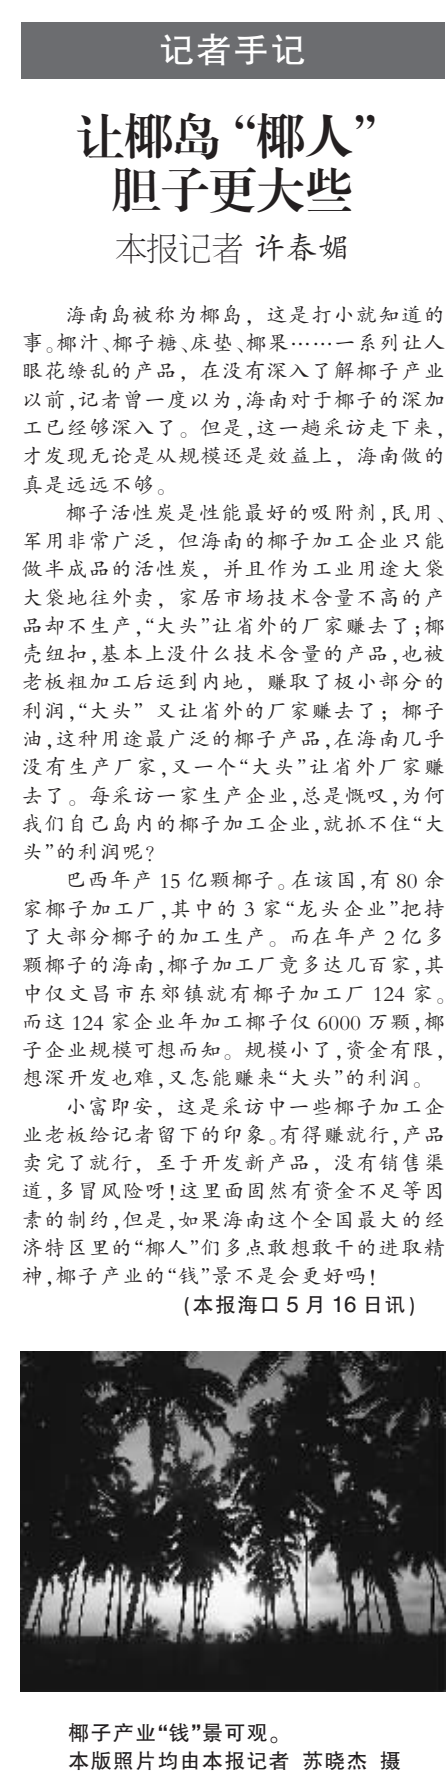 记者手记
让椰岛“椰人”
胆子更大些
本报记者 许春媚
海南岛被称为椰岛，这是打小就知道的
事。椰汁、椰子糖、床垫、椰果……一系列让人
眼花缭乱的产品，在没有深入了解椰子产业
以前,记者曾一度以为,海南对于椰子的深加
工已经够深入了。但是,这一趟采访走下来,
才发现无论是从规模还是效益上，海南做的
真是远远不够。
椰子活性炭是性能最好的吸附剂,民用、
军用非常广泛，但海南的椰子加工企业只能
做半成品的活性炭，并且作为工业用途大袋
大袋地往外卖，家居市场技术含量不高的产
品却不生产,“大头”让省外的厂家赚去了;椰
壳纽扣,基本上没什么技术含量的产品,也被
老板粗加工后运到内地，赚取了极小部分的
利润,“大头” 又让省外的厂家赚去了；椰子
油,这种用途最广泛的椰子产品,在海南几乎
没有生产厂家,又一个“大头”让省外厂家赚
去了。每采访一家生产企业,总是慨叹,为何
我们自己岛内的椰子加工企业,就抓不住“大
头”的利润呢?
巴西年产 15 亿颗椰子。在该国,有 80 余
家椰子加工厂,其中的 3 家“龙头企业”把持
了大部分椰子的加工生产。而在年产 2 亿多
颗椰子的海南,椰子加工厂竟多达几百家,其
中仅文昌市东郊镇就有椰子加工厂 124 家。
而这 124 家企业年加工椰子仅 6000 万颗,椰
子企业规模可想而知。规模小了,资金有限,
想深开发也难,又怎能赚来“大头”的利润。
小富即安，这是采访中一些椰子加工企
业老板给记者留下的印象。有得赚就行,产品
卖完了就行，至于开发新产品，没有销售渠
道,多冒风险呀!这里面固然有资金不足等因
素的制约,但是,如果海南这个全国最大的经
济特区里的“椰人”们多点敢想敢干的进取精
神,椰子产业的“钱”景不是会更好吗!
(本报海口 5 月 16 日讯)
椰子产业“钱”景可观。
本版照片均由本报记者 苏晓杰 摄